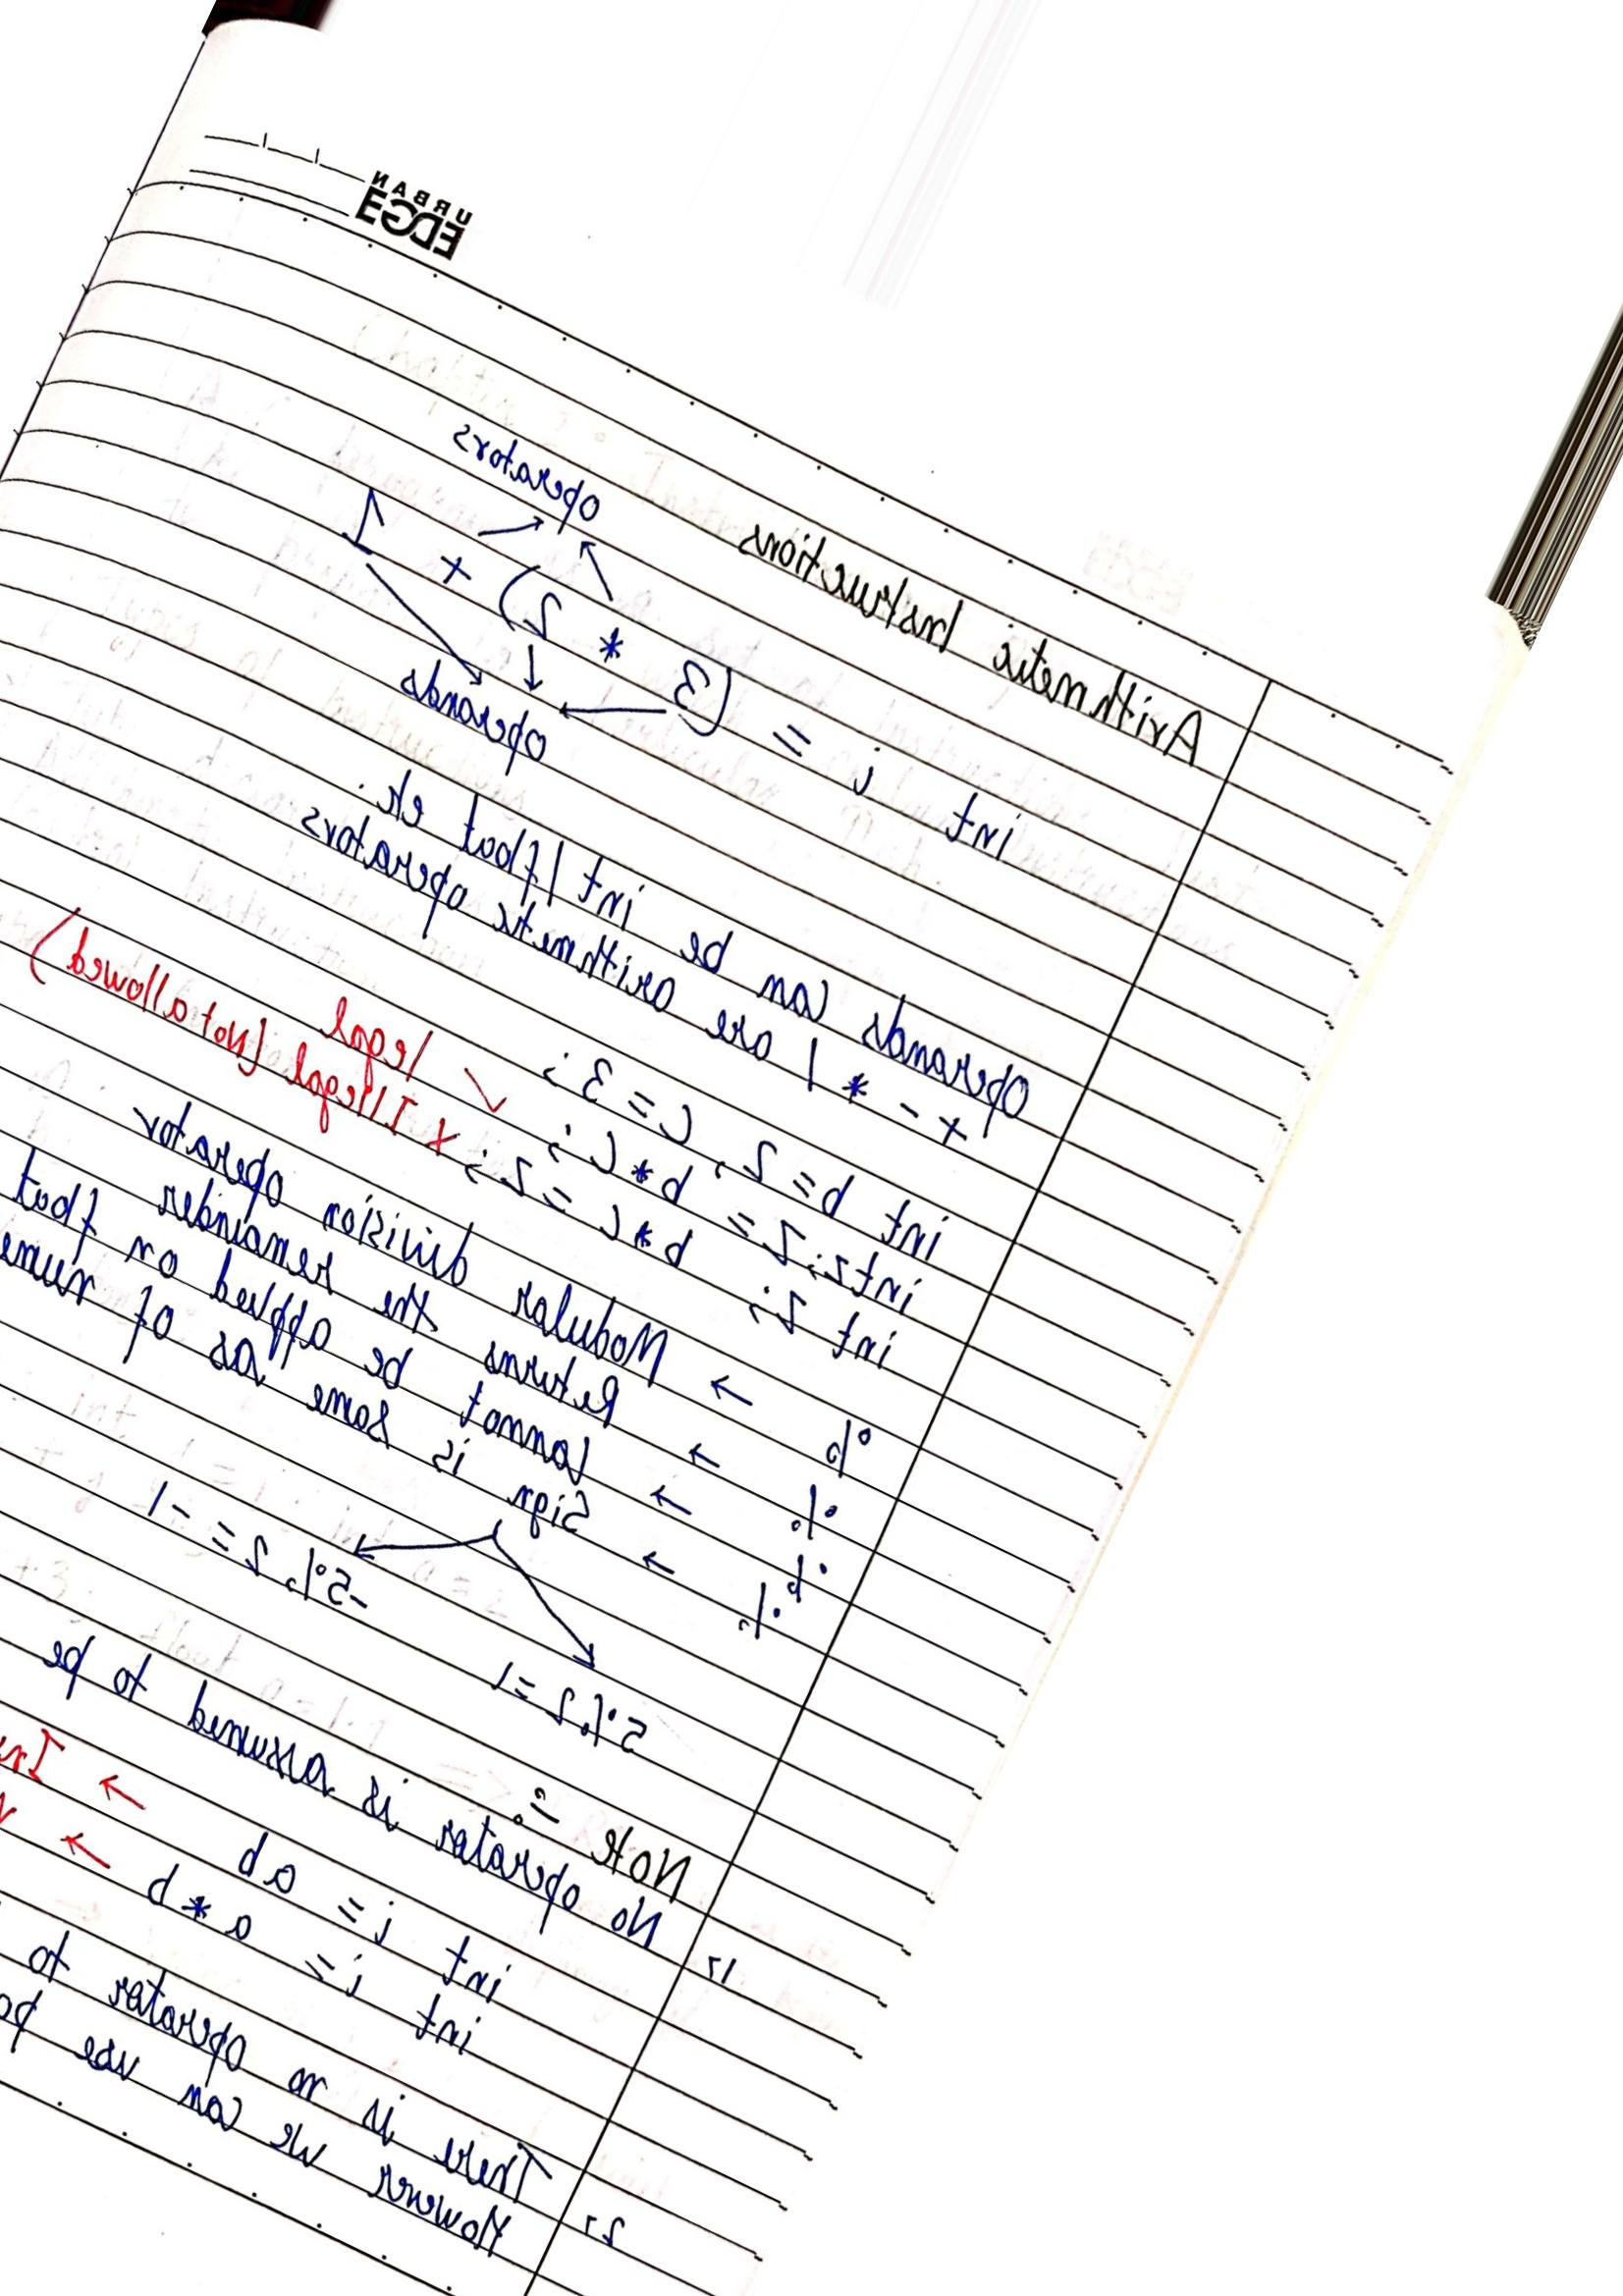 URBAN
EDGE
Arithmetic Instructions
operators
int i = (3 * 2) + 1
operands
Operands can be int / float etc.
+ - * / are arithmetic operators
int b = 2, c = 3;
int z; z = b * c; ✓ legal
int z; b * c = z; × Illegal (Not allowed)
% → Modular division operator
% → Returns the remainder
% → Cannot be applied on float
% → Sign is same as of
5 % 2 = 1
-5 % 2 = -1
Note :-
1) No operator is assumed to be
int i = ab →
int i = a * b →
2) There is no operator to
However we can use